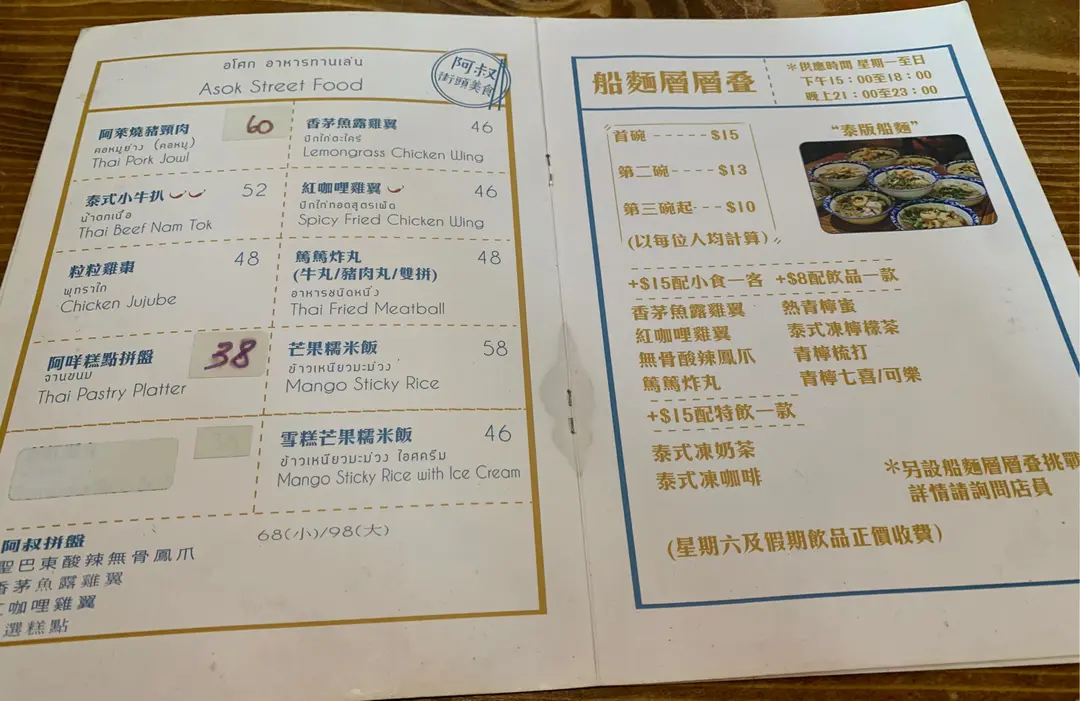 อโศก อาหารทานเล่น
Asok Street Food
阿叔
街頭美食
阿萊燒豬頸肉 60
คอหมูย่าง (คอหมู)
Thai Pork Jowl
泰式小牛扒 52
น้ำตกเนื้อ
Thai Beef Nam Tok
粒粒雞棗 48
พุทราไก่
Chicken Jujube
阿咩糕點拼盤 38
จานขนม
Thai Pastry Platter
香茅魚露雞翼 46
ปีกไก่ตะไคร้
Lemongrass Chicken Wing
紅咖哩雞翼 46
ปีกไก่ทอดสูตรเผ็ด
Spicy Fried Chicken Wing
篤篤炸丸 48
(牛丸/豬肉丸/雙拼)
อาหารชนิดหนึ่ง
Thai Fried Meatball
芒果糯米飯 58
ข้าวเหนียวมะม่วง
Mango Sticky Rice
雪糕芒果糯米飯 46
ข้าวเหนียวมะม่วง ไอศครีม
Mango Sticky Rice with Ice Cream
阿叔拼盤 68(小)/98(大)
聖巴東酸辣無骨鳳爪
香茅魚露雞翼
紅咖哩雞翼
選糕點
船麵層層叠
*供應時間 星期一至日
下午15:00至18:00
晚上21:00至23:00
首碗 ----- $15
第二碗 ---- $13
第三碗起 --- $10
(以每位人均計算)
“泰版船麵”
+$15配小食一客 +$8配飲品一款
香茅魚露雞翼 熱青檸蜜
紅咖哩雞翼 泰式凍檸檬茶
無骨酸辣鳳爪 青檸梳打
篤篤炸丸 青檸七喜/可樂
+$15配特飲一款
泰式凍奶茶
泰式凍咖啡
*另設船麵層層叠挑戰
詳情請詢問店員
(星期六及假期飲品正價收費)